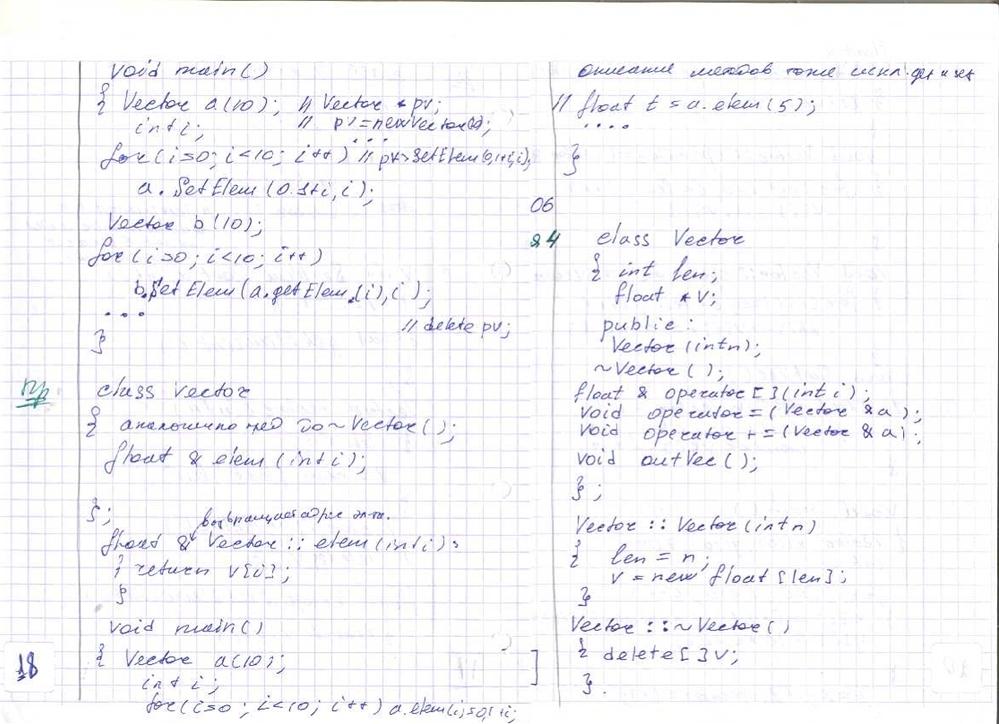 void main()
{ Vector a(10); // Vector * pv;
int i; // pv = new Vector(10);
...
for(i=0; i<10; i++) // pv->SetElem(0.1+i,i);
a.SetElem(0.1+i,i);
Vector b(10);
for(i=0; i<10; i++)
b.SetElem(a.getElem(i),i);
...
// delete pv;
}
Пр
class Vector
{ аналогично пред до ~Vector();
float & elem(int i);
};
возвращает адрес элта.
float & Vector :: elem(int i)
{ return v[i];
}
void main()
{ Vector a(10);
int i;
for(i=0; i<10; i++) a.elem(i)=0.1+i;
18
описание методов тоже искл. get и set
// float t = a.elem(5);
....
}
06
класс Vector
{ int len;
float *v;
public:
Vector(int n);
~Vector();
float & operator[](int i);
void operator=(Vector & a);
void operator+=(Vector & a);
void outVec();
};
Vector :: Vector(int n)
{ len = n;
v = new float[len];
}
Vector :: ~Vector()
{ delete[]v;
}.